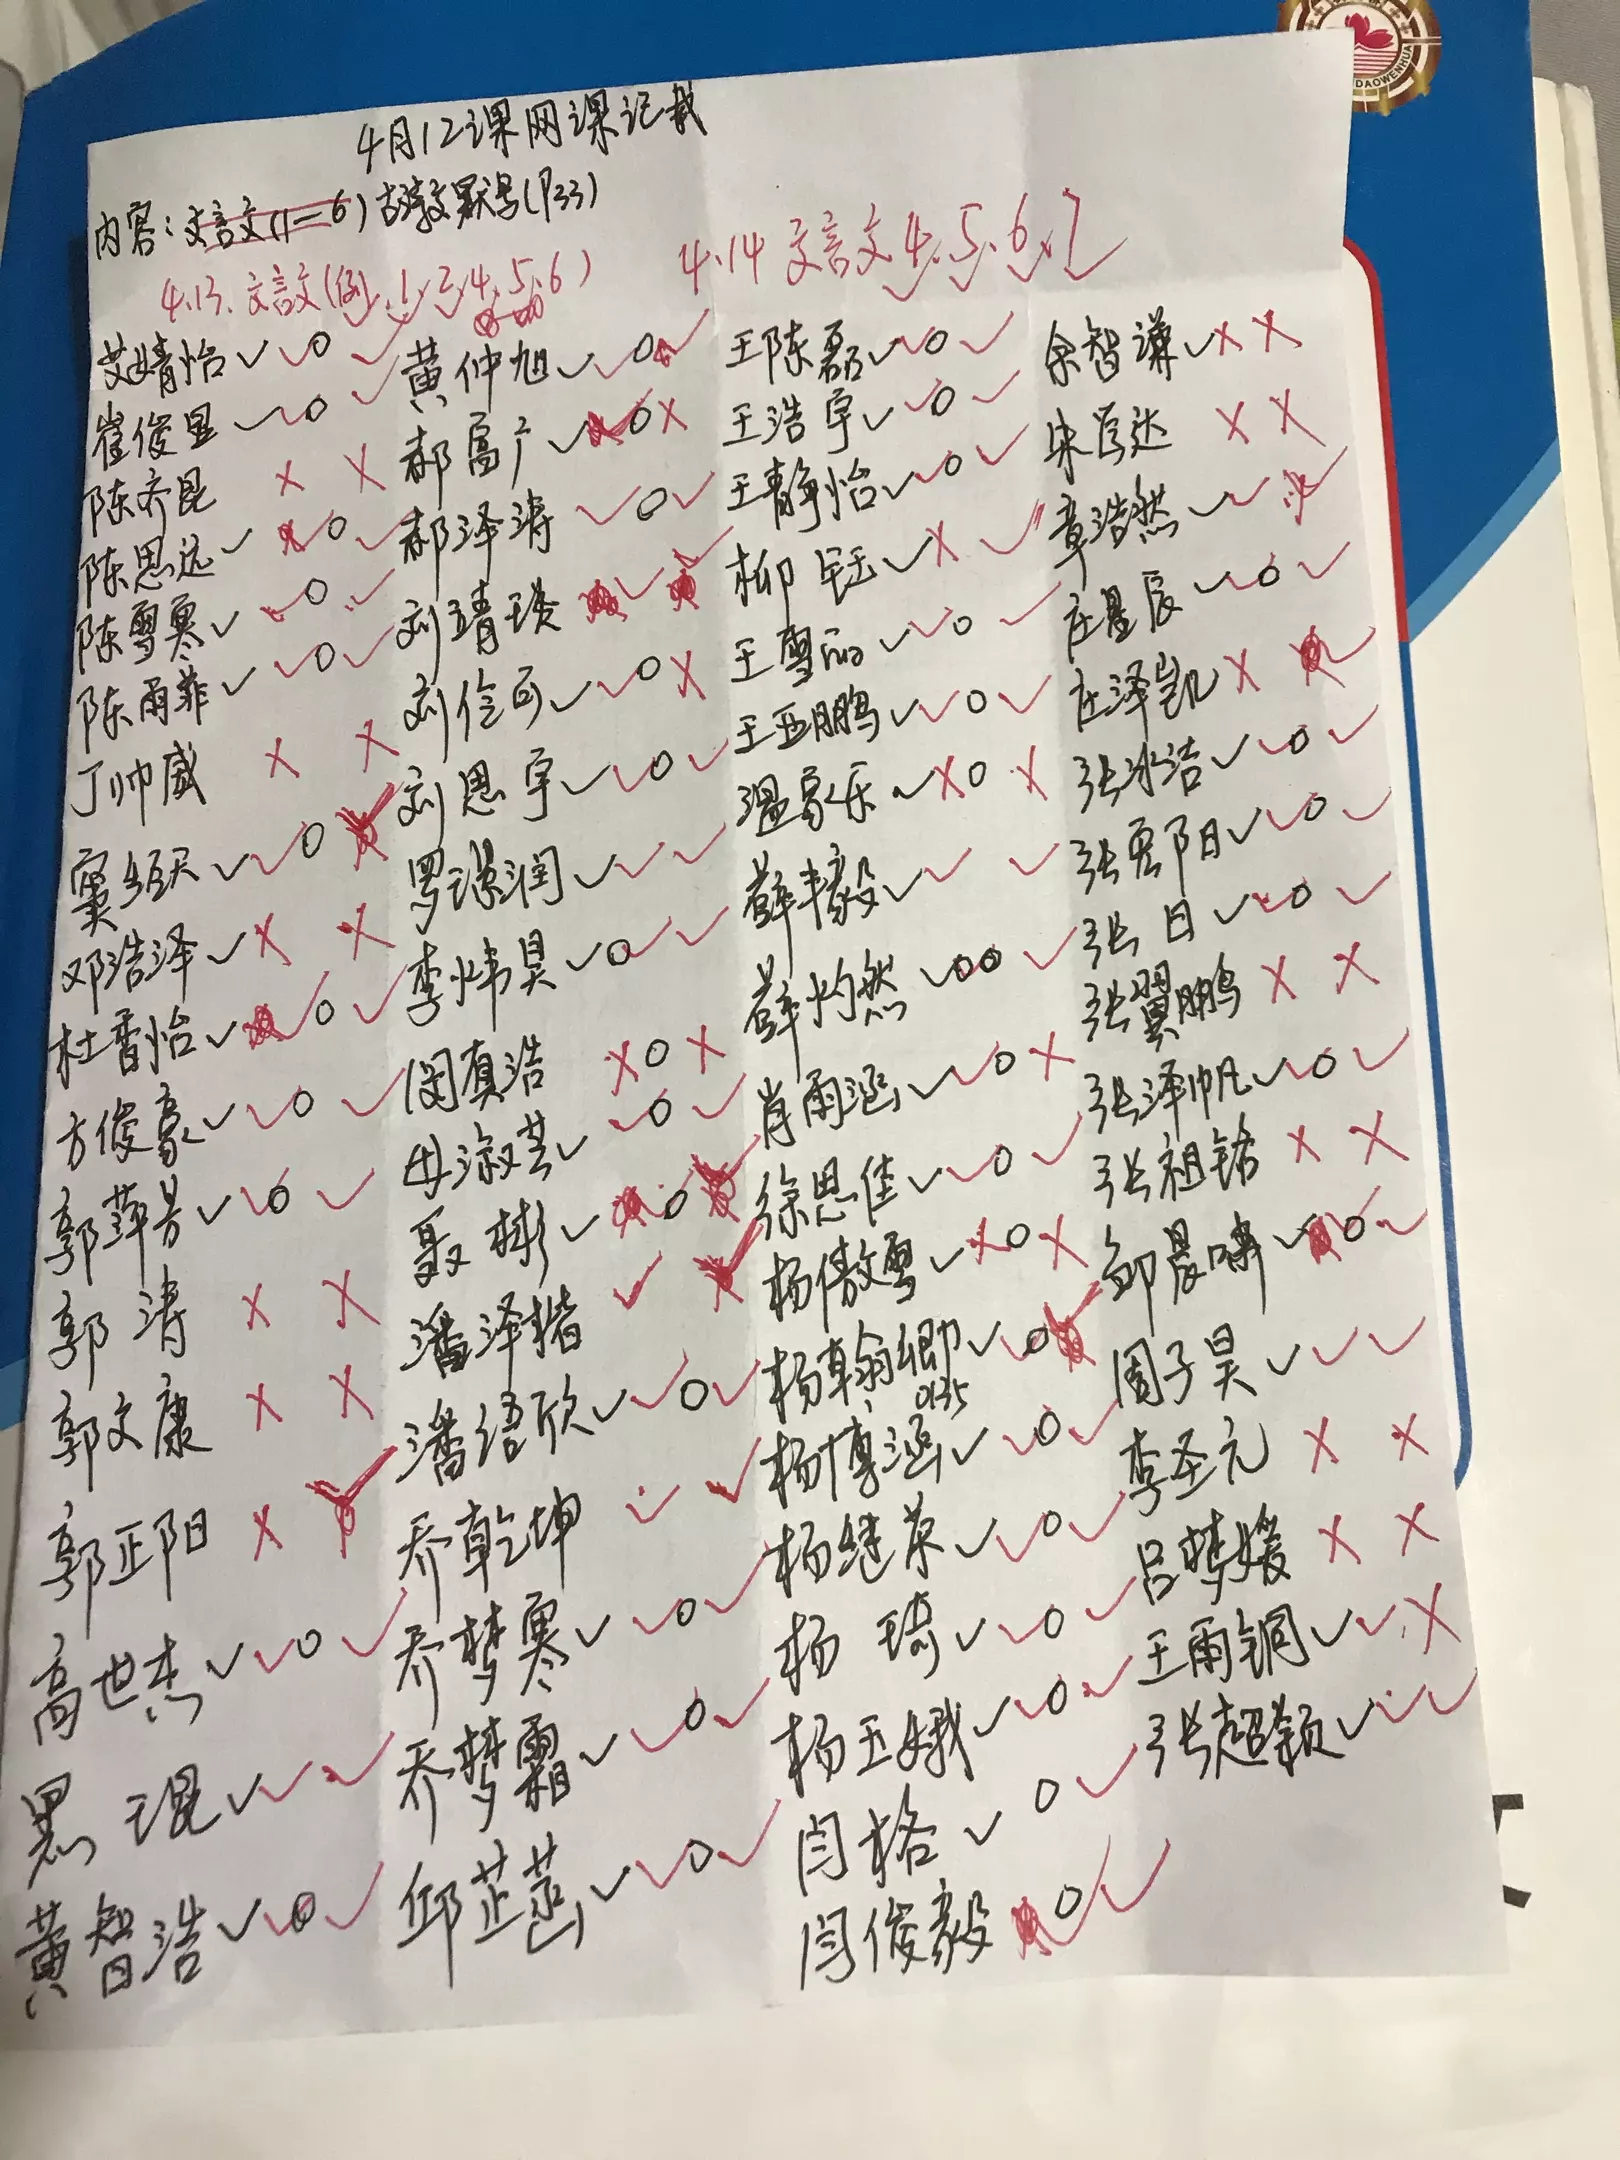 4月12课网课记载
内容:文言文(1-6)古诗文默写(P33)
4.13.文言文(例.1.2.4.5.6)
4.14文言文4.5.6.7
艾婧怡
崔俊显
陈齐昆
陈思远
陈雪寒
陈雨菲
丁帅威
窦天
邓浩泽
杜香怡
方俊豪
郭萍芳
郭涛
郭文康
郭正阳
高世杰
黑琨
黄智浩
黄仲旭
郝富广
郝泽涛
刘靖瑛
刘伶可
刘恩宇
罗润
李炜昊
闵真浩
毋淑芸
聂彬
潘泽楷
潘语欣
乔乾坤
乔梦寒
乔梦霜
邱芷菡
王陈磊
王浩宇
王静怡
柳钰
王雪丽
王亚鹏
温家乐
薛丰毅
薛灼然
肖雨涵
徐思佳
杨傲雪
杨翰卿
0135
杨博涵
杨继荣
杨琦
杨玉娥
闫格
闫俊毅
余智谦
朱达
章浩然
庄星辰
庄泽凯
张冰洁
张夏阳
张日
张翼鹏
张泽帆
张祖铭
邹晨啸
周子昊
李圣元
吕梦媛
王雨铜
张超颖
DAOWENHUA